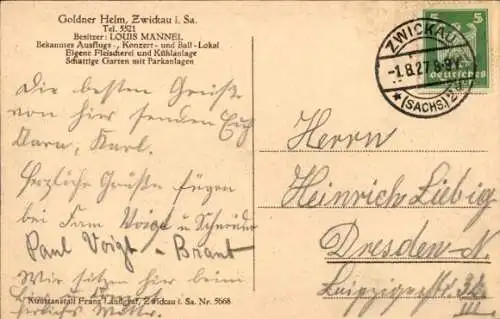 Goldner Helm, Zwickau i. Sa.
Tel. 5521
Besitzer: LOUIS MANNEL
Bekanntes Ausflugs-, Konzert- und Ball-Lokal
Eigene Fleischerei und Kühlanlage
Schattige Garten mit Parkanlagen
ZWICKAU
-1.8.27.8-9V.
* (SACHS.) 2
5
5
Deutsches
Die besten Grüße
von hier senden Euch
Karl.
Herzliche Grüße fügen
bei Fam Voigt u Schneider
Paul Voigt u Braut
Wir sitzen hier beim
Kunstanstalt Franz Landgraf, Zwickau i. Sa. Nr. 5668
Herrn
Heinrich Liebig
Dresden-N.
Leipzigerstr.
III